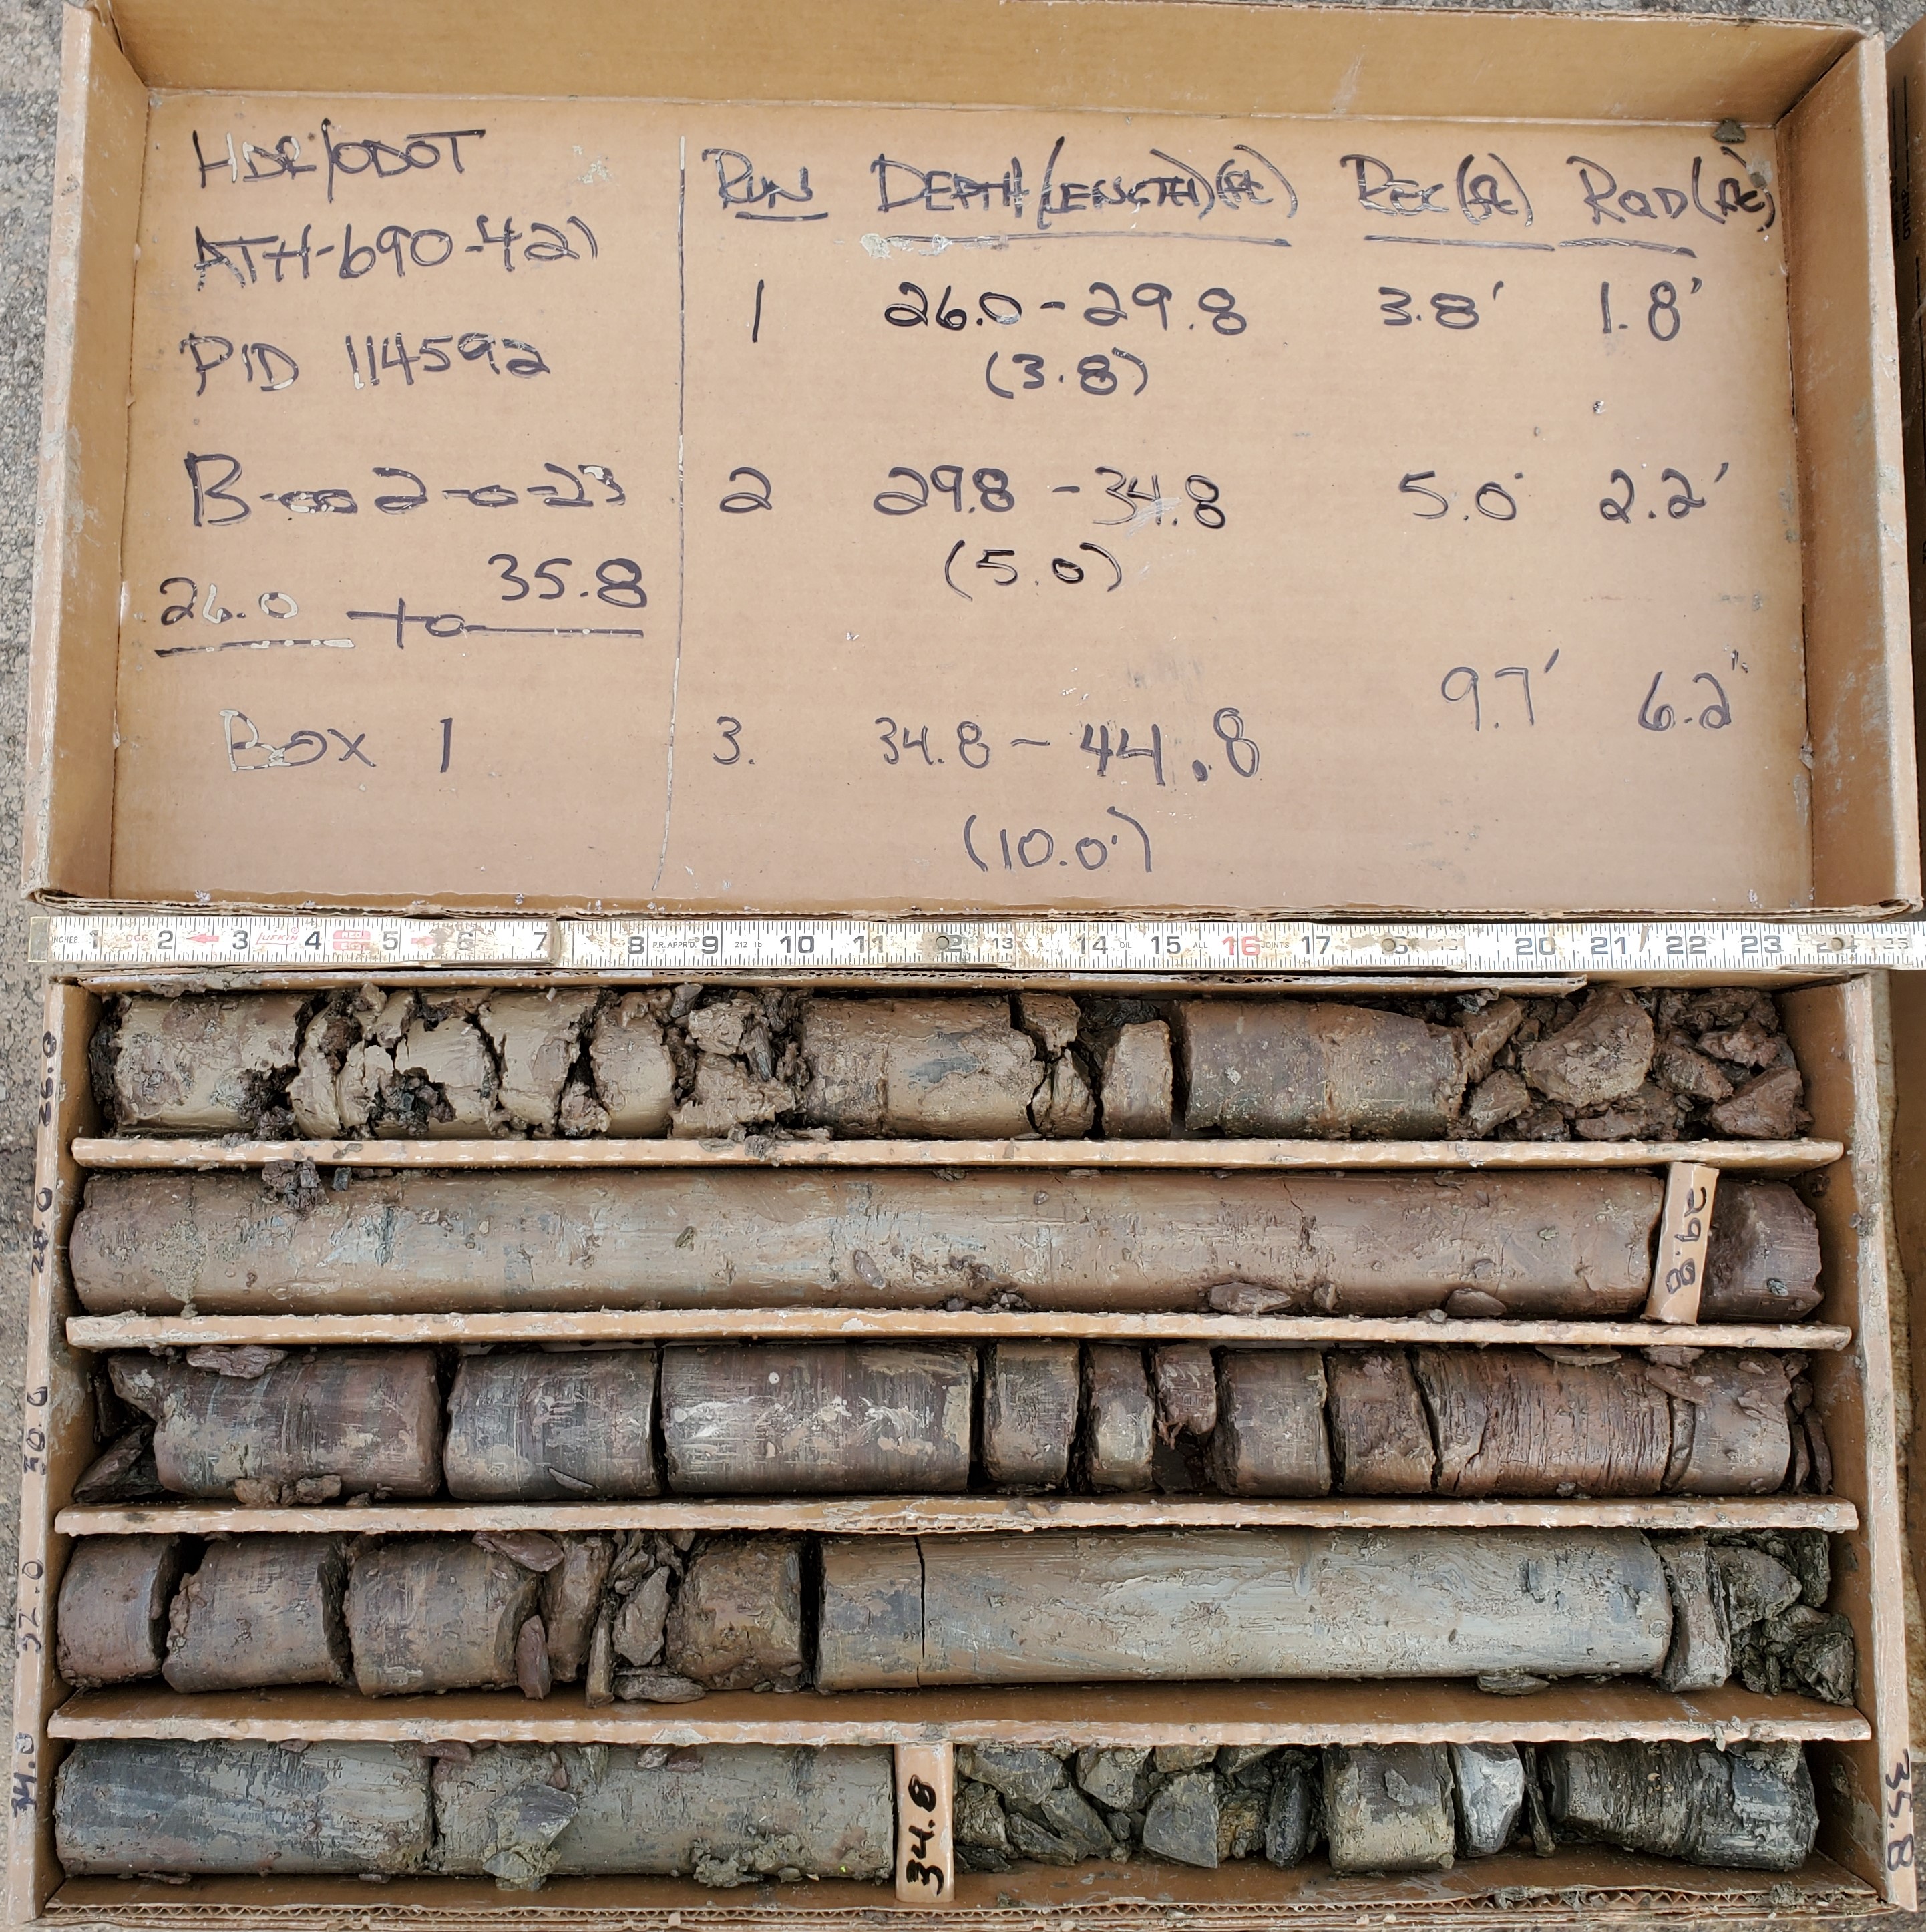 HDR/ODOT
ATH-690-421
PID 114592
B-002-0-23
26.0 to 35.8
BOX 1
RUN DEPTH (LENGTH)(ft) REC (ft) RQD (ft)
1 26.0-29.8 3.8' 1.8'
(3.8)
2 29.8-34.8 5.0' 2.2'
(5.0)
3. 34.8-44.8 9.7' 6.2'
(10.0')
INCHES 1 2 3 LUFKIN 4 RED END 5 6 7 8 P.R. APPR'D. 9 212 Tb 10 11 12 13 14 OIL 15 ALL 16 JOINTS 17 18 19 20 21 22 23 24 25
26.0
28.0
29.8
30.0
32.0
34.0
34.8
35.8